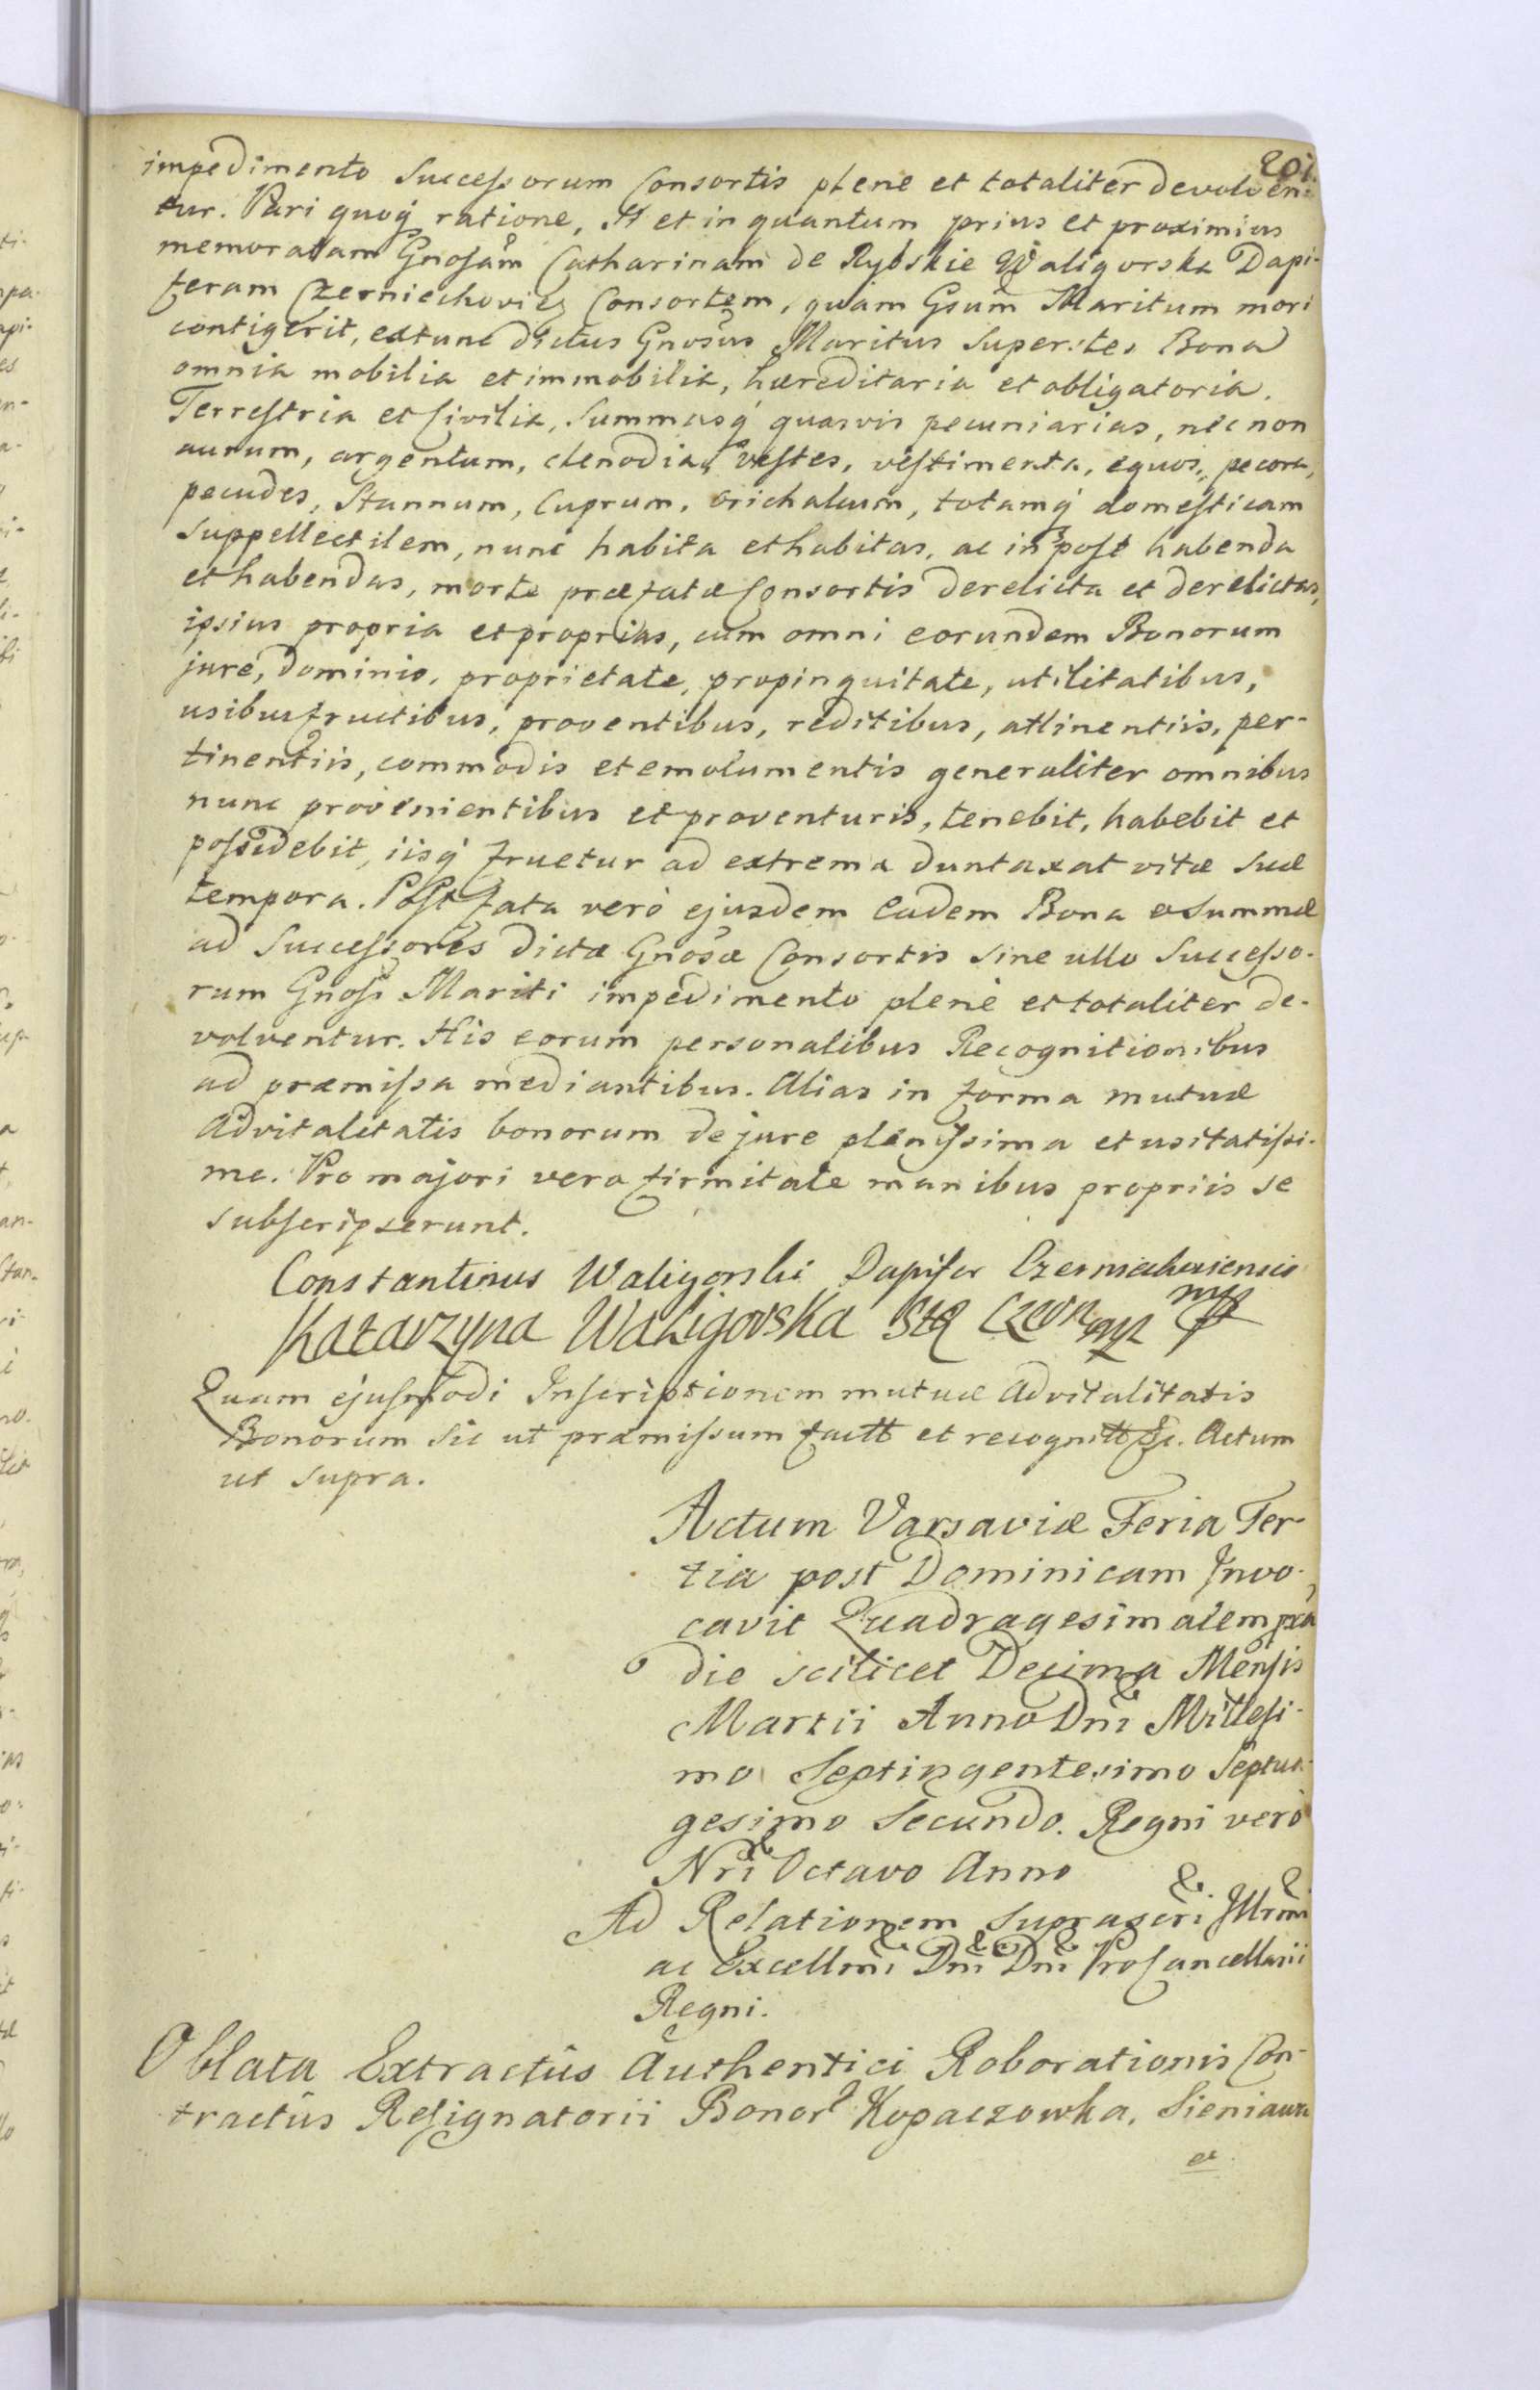 201.
impedimento Successorum Consortis plene et totaliter devolven=
tur. Pari quoq́ ratione, Si et in quantum prius et proximius
memoratam Gnosam Catharinam de Rybskie Waligorska Dapi-
feram Czerniechovien Consortem, quàm Gsum Maritum mori
contigerit, extunc dictus Gnosus Maritus Superstes Bona
omnia mobilia et immobilia, hæreditaria et obligatoria.
Terrestria et Civilia, Summasq́ quasvis pecuniarias, nec non
aurum, argentum, clenodia, vestes, vestimenta, equos, pecora,
pecudes, Stannum, Cuprum, orichalcum, totamq́ domesticam
Suppellectilem, nunc habita et habitas, ac in post habenda
et habendas, morte præfatæ Consortis derelicta et derelictas,
ipsius propria et proprias, cum omni eorundem Bonorum
jure, dominio, proprietate, propinquitate, utilitatibus,
usibusfructibus, proventibus, reditibus, attinentiis, per-
tinentiis, commodis et emolumentis generaliter omnibus
nunc provenientibus et proventuris, tenebit, habebit et
possidebit, iisq́ fruetur ad extrema duntaxat vitæ suæ
tempora. Post fata verò ejusdem eadem Bona et Summæ
ad Successores dictæ Gnosæ Consortis sine ullo Successo-
rum Gnosi Mariti impedimento plenè et totaliter de-
volventur. His eorum personalibus Recognitionibus
ad præmissa mediantibus. Alias in forma mutuæ
Advitalitatis bonorum de jure plenissima et usitatissi-
ma. Pro majori vero firmitate manibus propriis se
subscripserunt.
Constantinus Waligorski Dapifer Czerniechoviensis
Katarzyna Waligorska Stą mp
Quam ejusmodi Inscriptionem mutuæ Advitalitatis
Bonorum sic ut præmissum factt et recognitt &c. Actum
ut supra.
Actum Varsaviæ Feria Ter-
tia post Dominicam Invo-
cavit Quadragesimalem pxa
die scilicet Decima Mensis
Martii Anno Dni Millesi-
mo Septingentesimo Septua-
gesimo Secundo. Regni verò
Nri Octavo Anno
Ad Relationem Suprascri Illrmi
ac Excellmi Dni Dni ProCancellarii
Regni.
Oblata Extractûs Authentici Roborationis Con-
tractûs Resignatorii Bonor Kopaczowka, Sieniawa
et